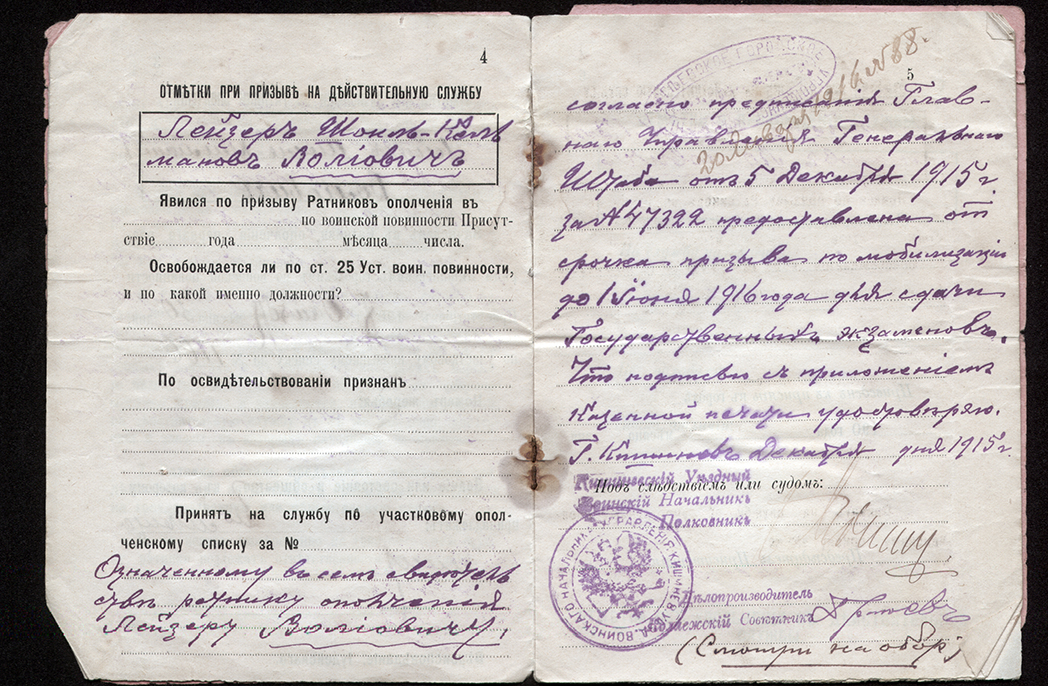 4
ОТМѢТКИ ПРИ ПРИЗЫВѢ НА ДѢЙСТВИТЕЛЬНУЮ СЛУЖБУ
Лейзеръ Шоиль-Кель
мановъ Воліовичъ
Явился по призыву Ратниковъ ополченія въ
по воинской повинности Присут-
ствіе года мѣсяца числа.
Освобождается ли по ст. 25 Уст. воин. повинности,
и по какой именно должности?
По освидѣтельствованіи признанъ
Принятъ на службу по участковому опол-
ченскому списку за №
Означенному въ семъ свидѣтель
ствѣ ратнику ополченія
Лейзеру Воліовичу,
ГОРОДСКОЕ
20 Января 1916 № 88.
5
согласно предписанія Глав-
наго Управленія Генеральнаго
Штаба отъ 5 Декабря 1915 г.
за № 47322 предоставлена от
срочка призыва по мобилизаціи
до 1 Іюня 1916 года для сдачи
Государственныхъ экзаменовъ.
Что подписью съ приложеніемъ
Казенной печати удостовѣряю.
Г. Кишиневъ Декабря дня 1915 г.
Подъ слѣдствіемъ или судомъ:
Кишиневскій Уѣздный
Воинскій Начальникъ
Полковникъ
УПРАВЛЕНІЯ КИШИНЕВ. УѢЗД. ВОИНСКАГО НАЧАЛЬНИКА
Дѣлопроизводитель
Совѣтникъ
(Смотри на обор.)